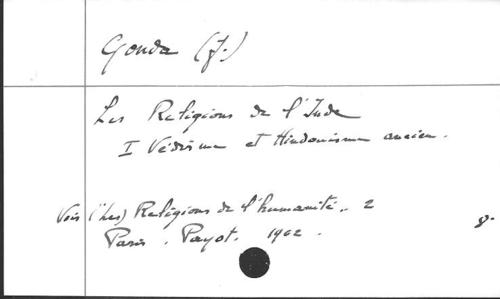 Gonda (J.)
Les Religions de l'Inde
I Védisme et Hindouisme ancien.
Voir (Les) Religions de l'humanité. 2
Paris. Payot. 1962.
8.